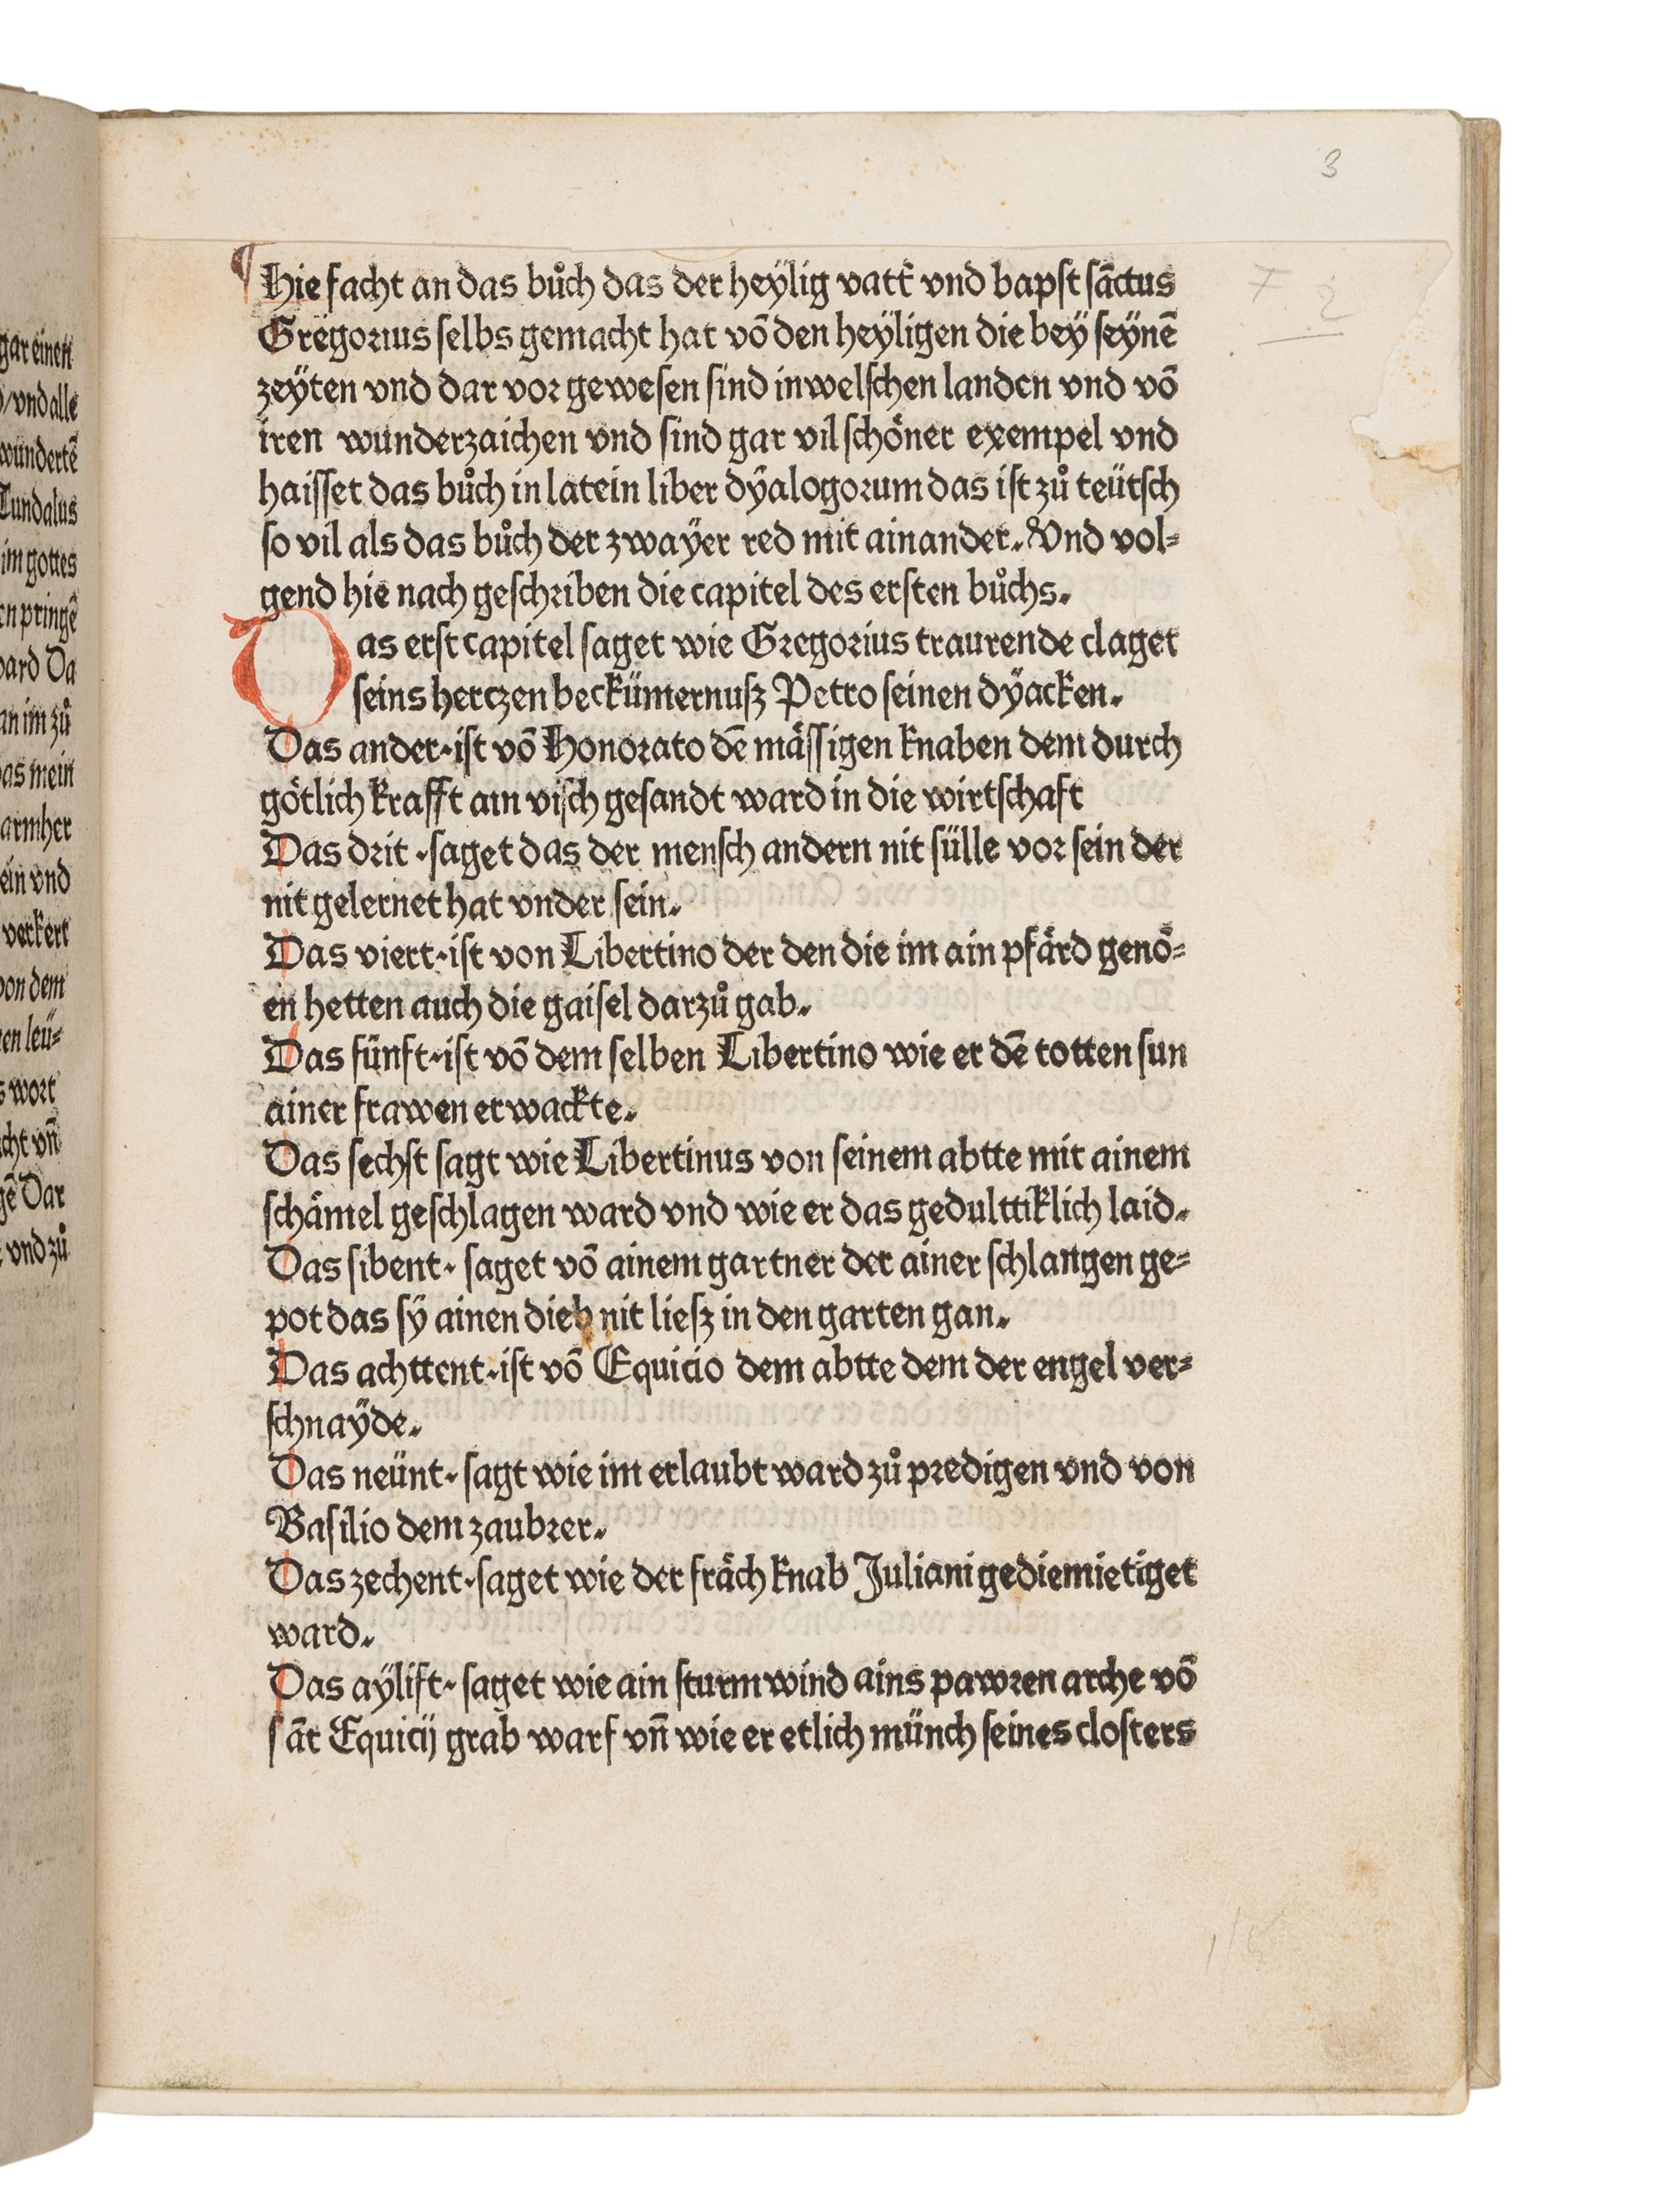 gar einen
/vnd alle
wunderte͂
Tundalus
im gottes
en pringe͂
ward Da
an im zů
das mein
armher
ein vnd
verkert
von dem
en leü⸗
s wort
cht vn̄
ge͂ Dar
vnd zů
3
7 2
¶ Hie facht an das bůch das der heÿlig vatt̄ vnd bapſt ſāctus
Gregoꝛius ſelbs gemacht hat vō den heÿligen die beÿ ſeÿnē
zeÿten vnd dar voꝛ geweſen ſind in welſchen landen vnd vō
iren wunderzaichen vnd ſind gar vil ſchöner exempel vnd
haiſſet das bůch in latein liber dÿalogoꝛum das iſt zů teütſch
ſo vil als das bůch der zwaÿer red mit ainander. Vnd vol⸗
gend hie nach geſchꝛiben die capitel des erſten bůchs.
Das erſt capitel ſaget wie Gregoꝛius traurende claget
ſeins hertzen beckümernuſz Petro ſeinen dÿacken.
Das ander·iſt vō Honoꝛato dē mäſſigen knaben dem durch
götlich krafft ain viſch geſandt ward in die wirtſchaft
Das dꝛit·ſaget das der menſch andern nit sülle voꝛ ſein der
nit gelernet hat vnder ſein.
Das viert·iſt von Libertino der den die im ain pfärd genō⸗
en hetten auch die gaiſel darzů gab.
Das fünft·iſt vō dem ſelben Libertino wie er dē totten ſun
ainer frawen erwackte.
Das ſechſt ſagt wie Libertinus von ſeinem abtte mit ainem
ſchämel geſchlagen ward vnd wie er das gedulttiklich laid.
Das ſibent·ſaget vō ainem gartner der ainer ſchlangen ge⸗
pot das ſÿ ainen dieb nit lieſz in den garten gan.
Das achttent·iſt vō Equicio dem abtte dem der engel ver⸗
ſchnaÿde.
Das neünt·ſagt wie im erlaubt ward zů pꝛedigen vnd von
Baſilio dem zaubꝛer.
Das zechent·ſaget wie der fräch knab Juliani gediemietiget
ward.
Das aÿlift·ſaget wie ain ſturm wind ains pawꝛen arche vō
ſāt Equicij grab warf vn̄ wie er etlich münch ſeines cloſters